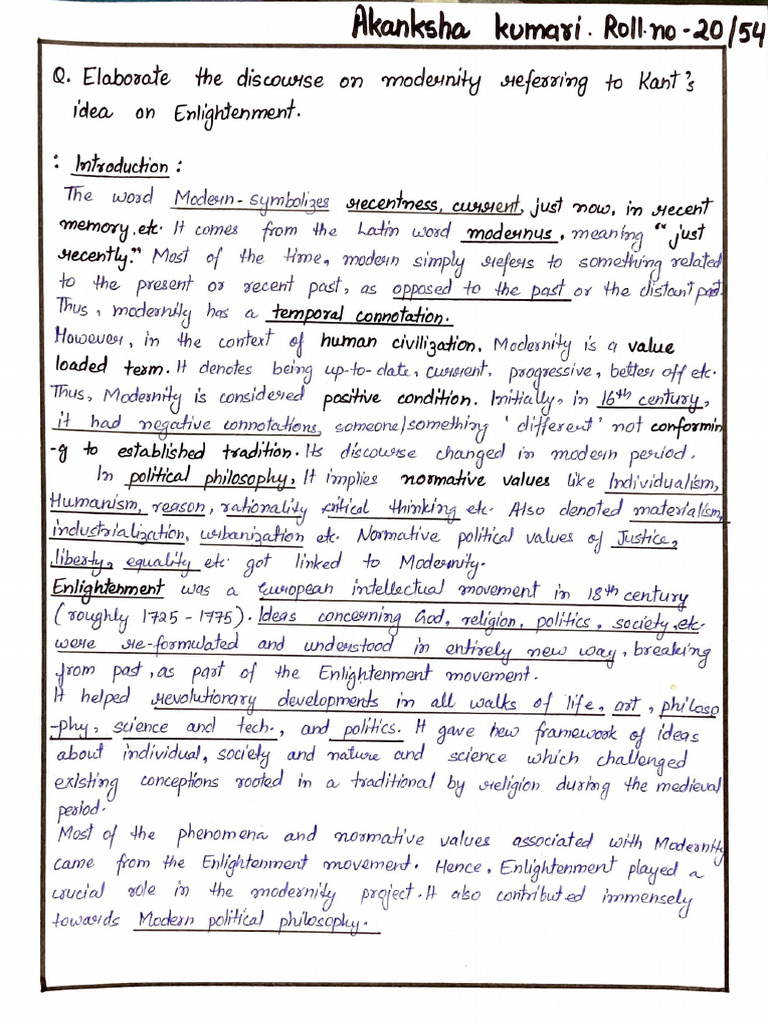 Akanksha kumari. Roll.no-20/54
Q. Elaborate the discourse on modernity referring to Kant's
idea on Enlightenment.
: Introduction :
The word Modern-symbolizes recentness, current, just now, in recent
memory.etc. It comes from the Latin word modernus, meaning "just
recently." Most of the time, modern simply refers to something related
to the present or recent past, as opposed to the past or the distant past.
Thus, modernity has a temporal connotation.
However, in the context of human civilization, Modernity is a value
loaded term. It denotes being up-to-date, current, progressive, better off etc.
Thus, Modernity is considered positive condition. Initially, in 16th century,
it had negative connotations, someone/something 'different' not conformin
-g to established tradition. Its discourse changed in modern period.
In political philosophy, It implies normative values like Individualism,
Humanism, reason, rationality critical thinking etc. Also denoted materialism,
industrialization, urbanization etc. Normative political values of Justice,
liberty, equality etc got linked to Modernity.
Enlightenment was a European intellectual movement in 18th century
(roughly 1725-1775). Ideas concerning God, religion, politics, society, etc.
were re-formulated and understood in entirely new way, breaking
from past, as part of the Enlightenment movement.
It helped revolutionary developments in all walks of life, art, philoso
-phy, science and tech., and politics. It gave new framework of ideas
about individual, society and nature and science which challenged
existing conceptions rooted in a traditional by religion during the medieval
period.
Most of the phenomena and normative values associated with Modernity
came from the Enlightenment movement. Hence, Enlightenment played a
crucial role in the modernity project. It also contributed immensely
towards Modern political philosophy.